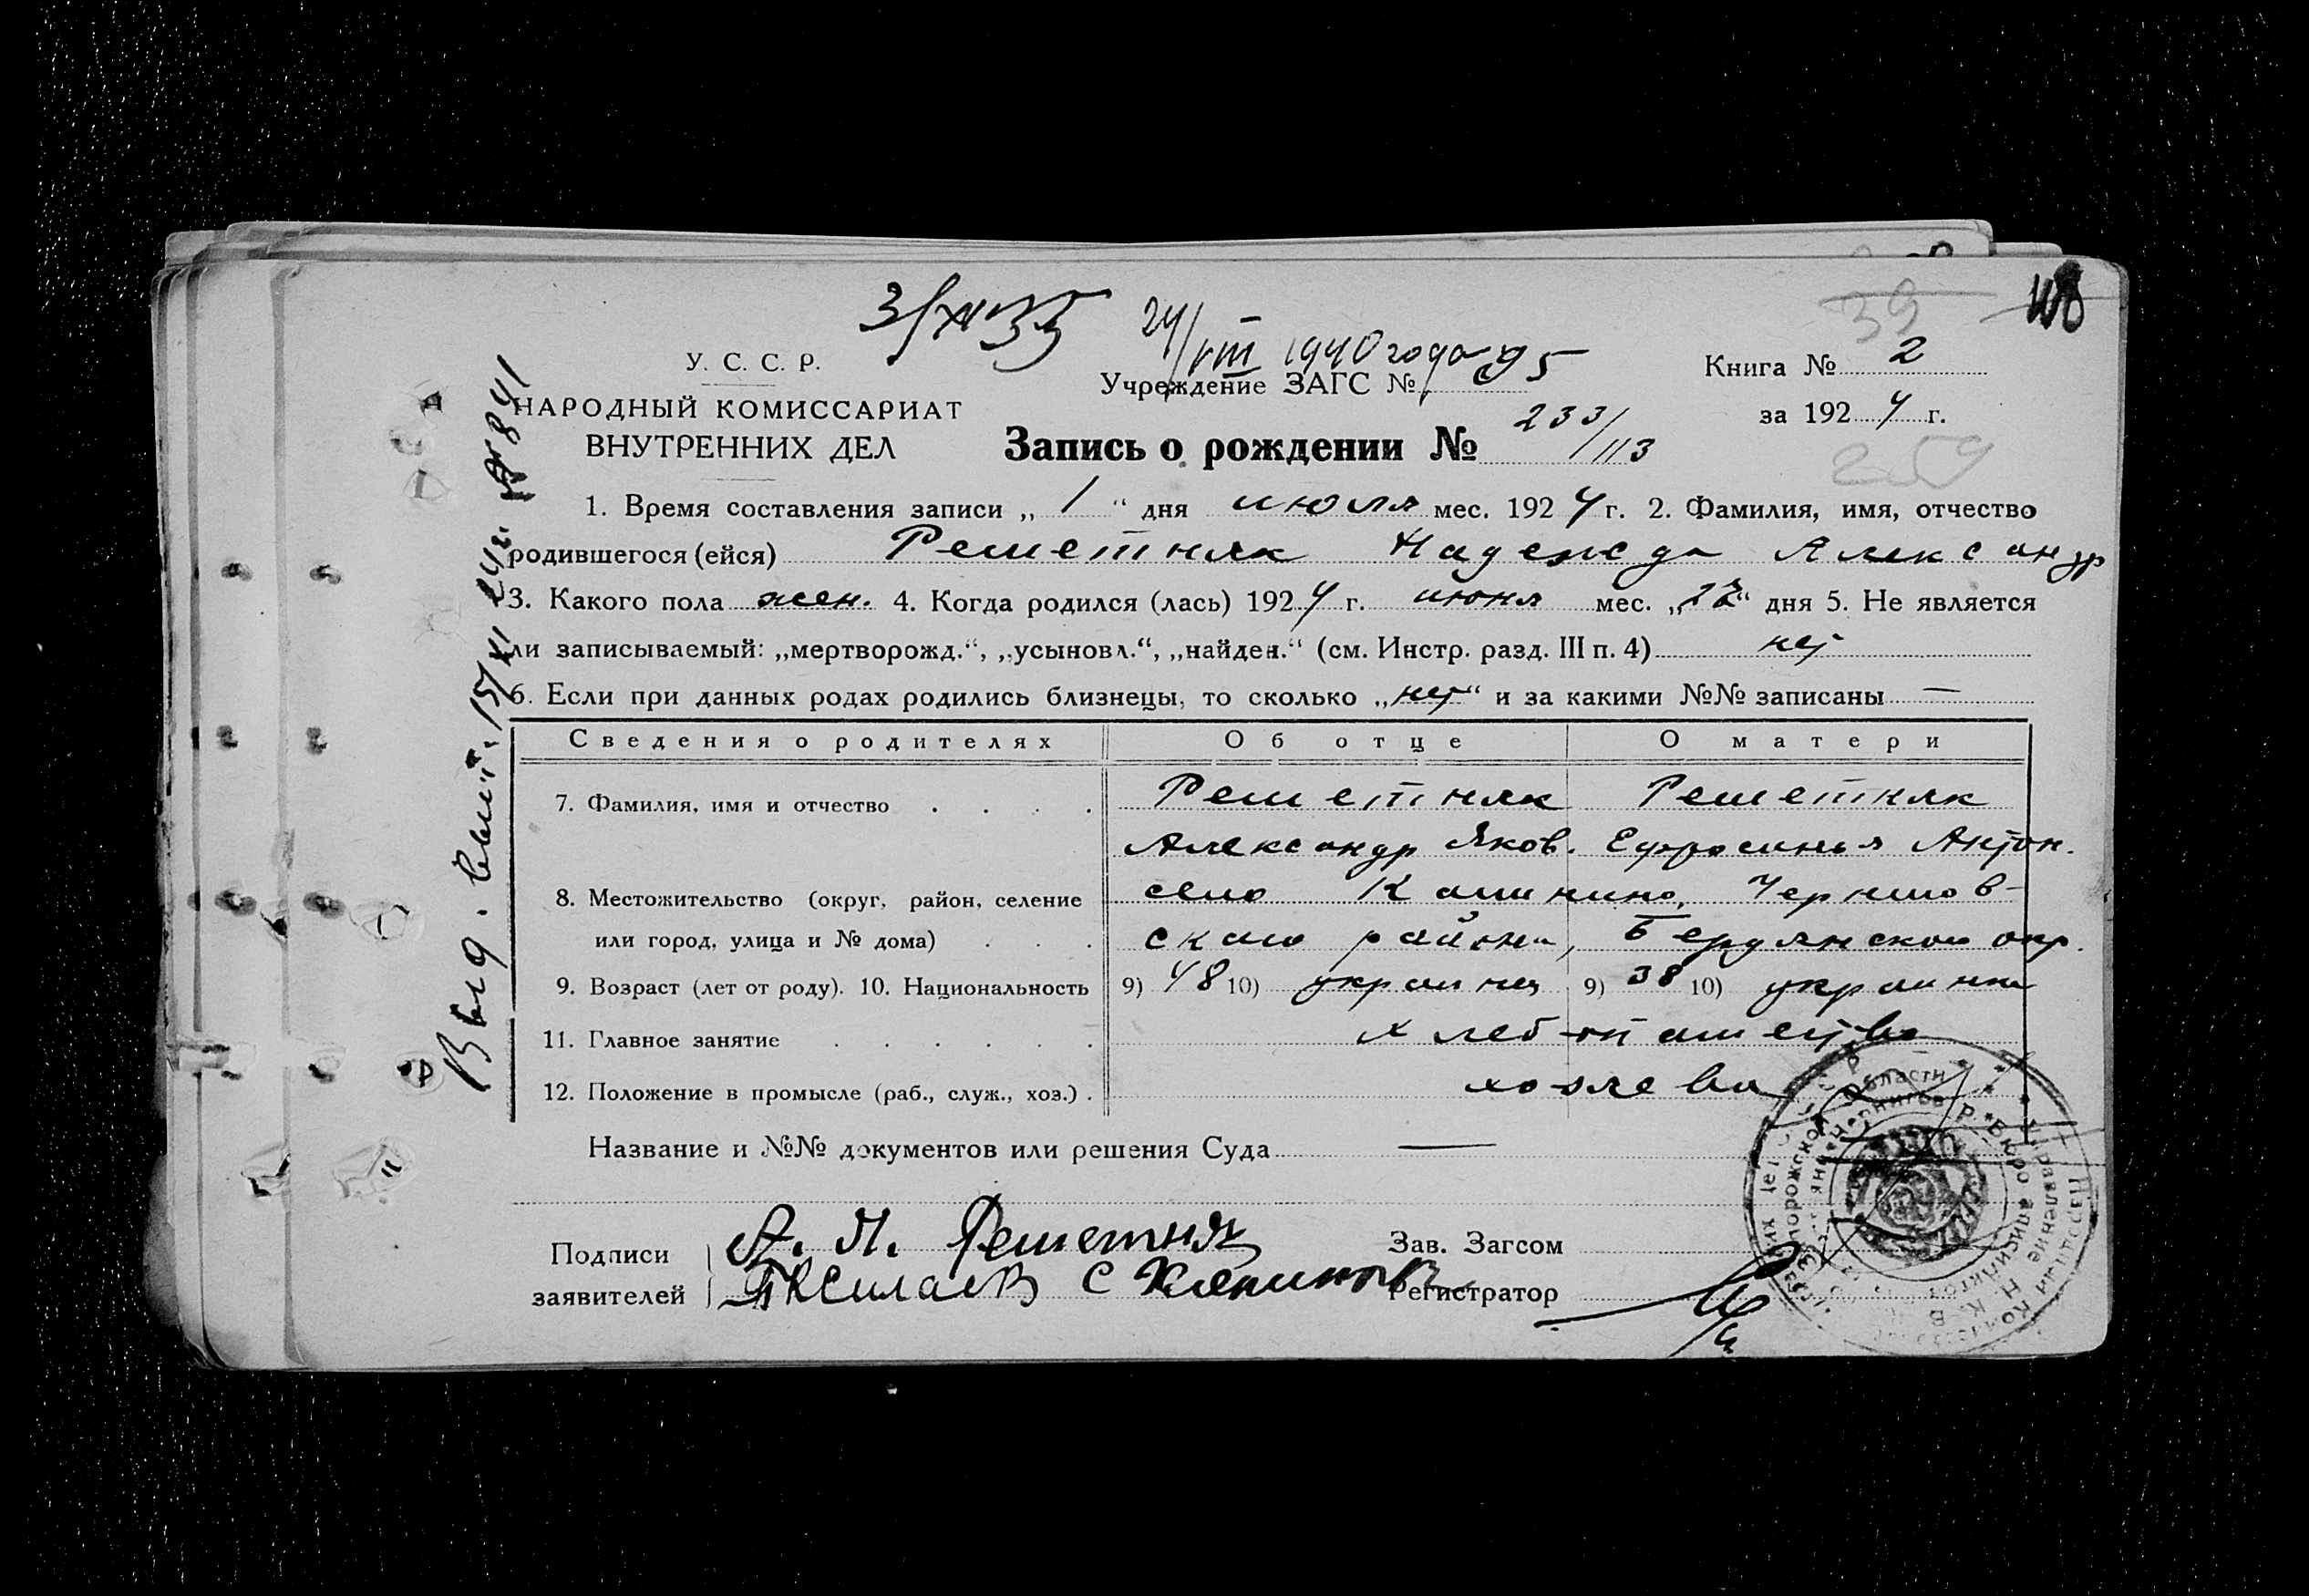 118
39
3/XI 35
24/VIII 1940 года
У. С. С. Р.
НАРОДНЫЙ КОМИССАРИАТ
ВНУТРЕННИХ ДЕЛ
Учреждение ЗАГС № 95
Книга № 2
за 1924 г.
Запись о рождении № 233/113
259
1. Время составления записи „ 1 “ дня июля мес. 1924 г. 2. Фамилия, имя, отчество
родившегося (ейся) Решетняк Надежда Александр
3. Какого пола жен. 4. Когда родился (лась) 1924 г. июня мес. „ “ дня 5. Не является
ли записываемый: „мертворожд.“, „усыновл.“, „найден.“ (см. Инстр. разд. III п. 4) нет
6. Если при данных родах родились близнецы, то сколько „нет“ и за какими №№ записаны —
Сведения о родителях Об отце О матери
7. Фамилия, имя и отчество . . . . Решетняк Решетняк
Александр Яков. Ефросинья Антон.
8. Местожительство (округ, район, селение село Чернигов-
или город, улица и № дома) . . . ского района, Бердянской окр.
9. Возраст (лет от роду). 10. Национальность 9) 48 10) украинец 9) 38 10) украинка
11. Главное занятие . . . . . . хлебопашество
12. Положение в промысле (раб., служ., хоз.) . хозяева
Название и №№ документов или решения Суда —
Подписи
заявителей
А. Я. Решетняк
Зав. Загсом
Регистратор
Выд.